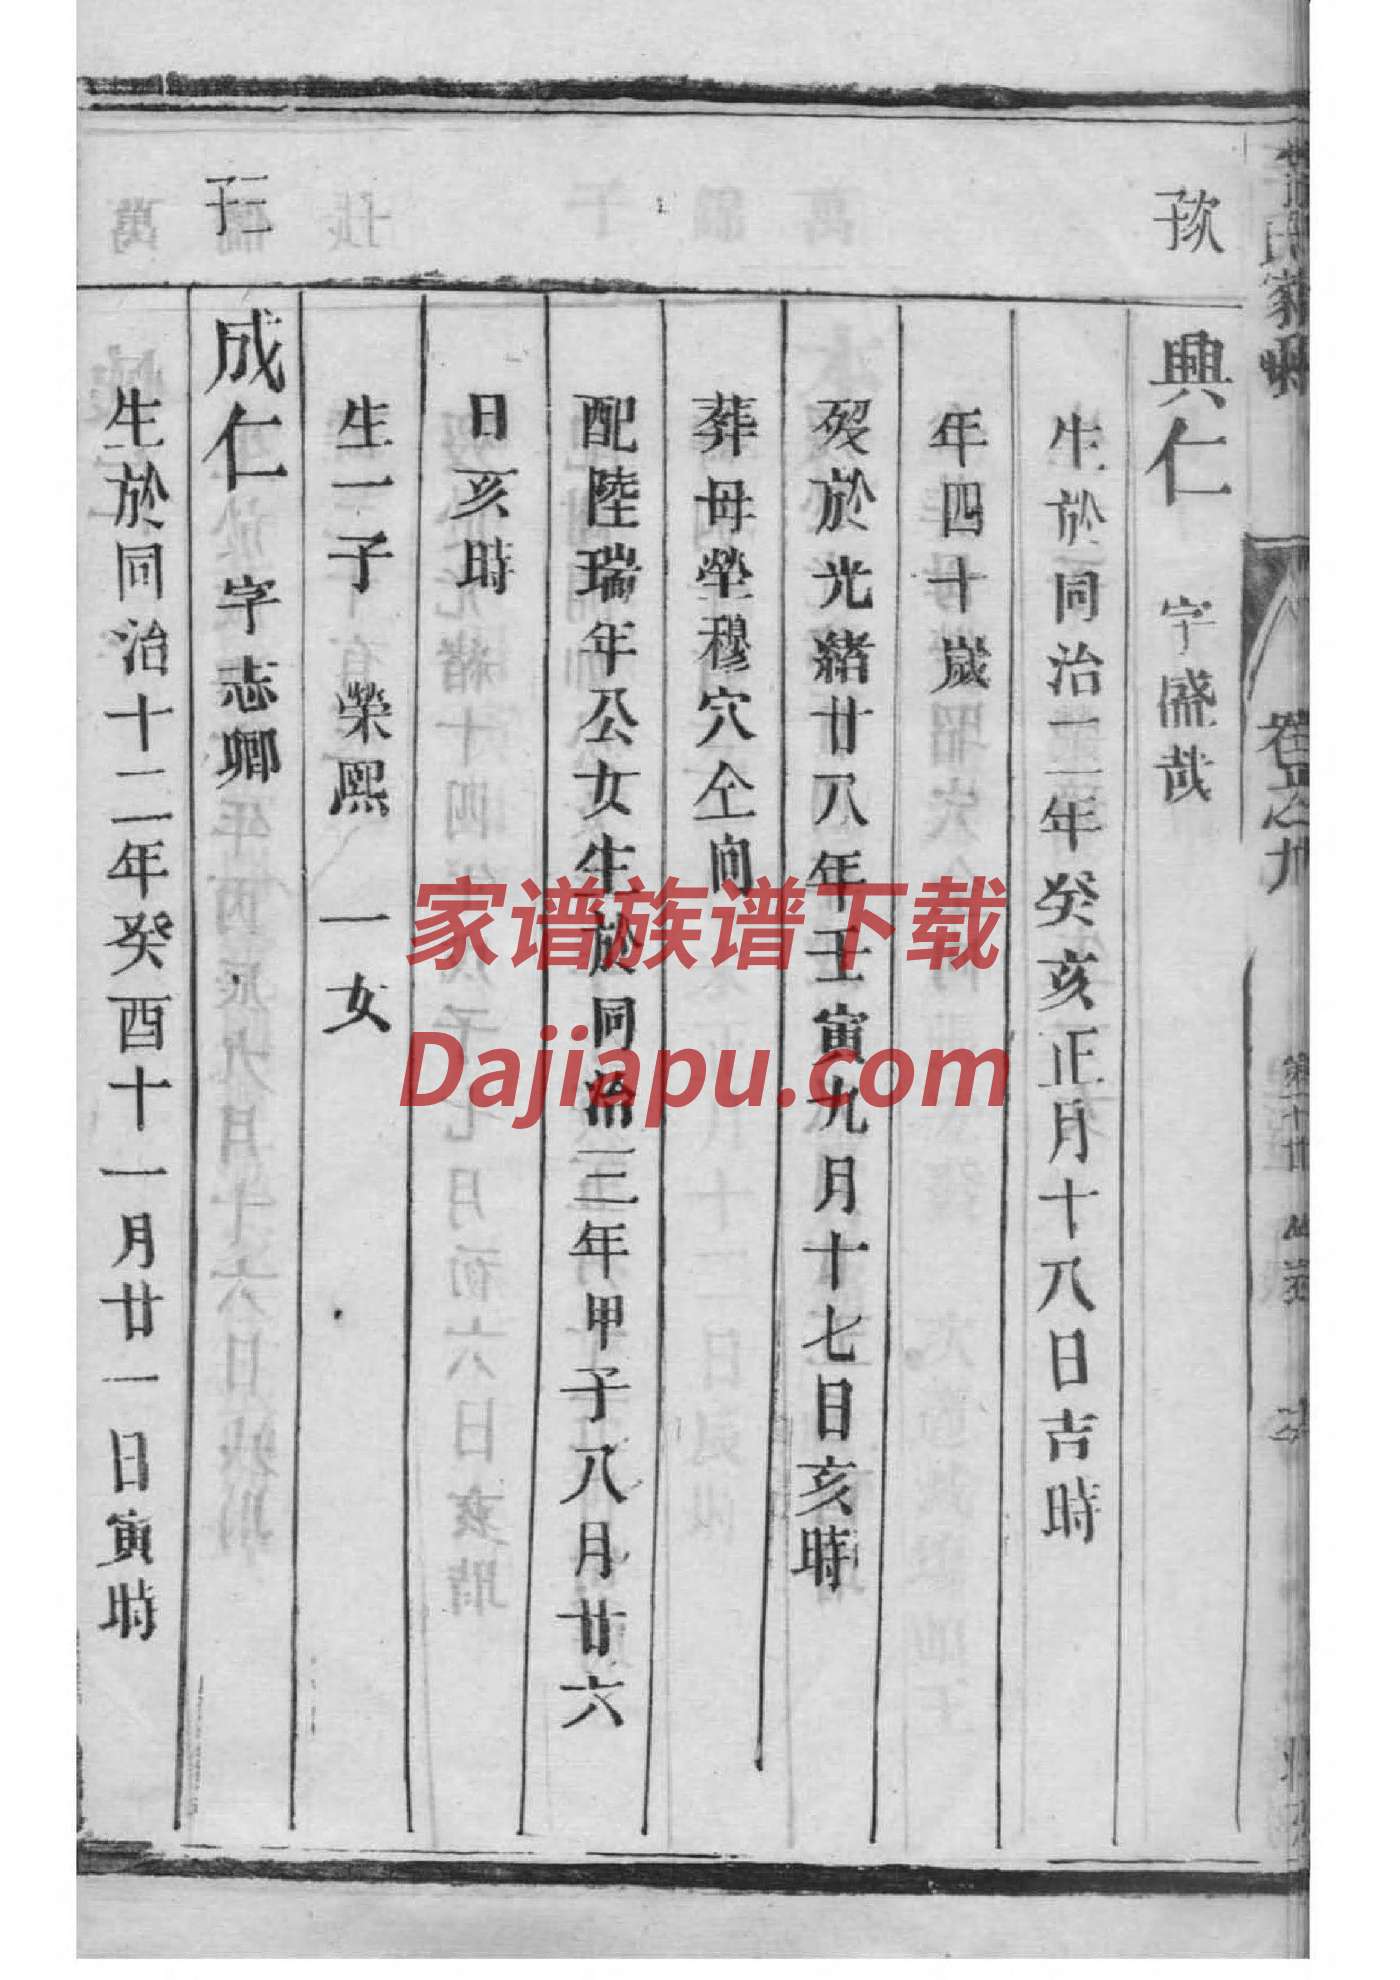 興仁 字盛哉
生於同治二年癸亥正月十八日吉時
年四十歲
歿於光緒廿八年壬寅九月十七日亥時
葬母塋穆穴仝向
配陸瑞年公女生於同治三年甲子八月廿六
日亥時
生一子 榮熙 一女
成仁 字志卿
生於同治十二年癸酉十一月廿一日寅時
家谱族谱下载
Dajiapu.com